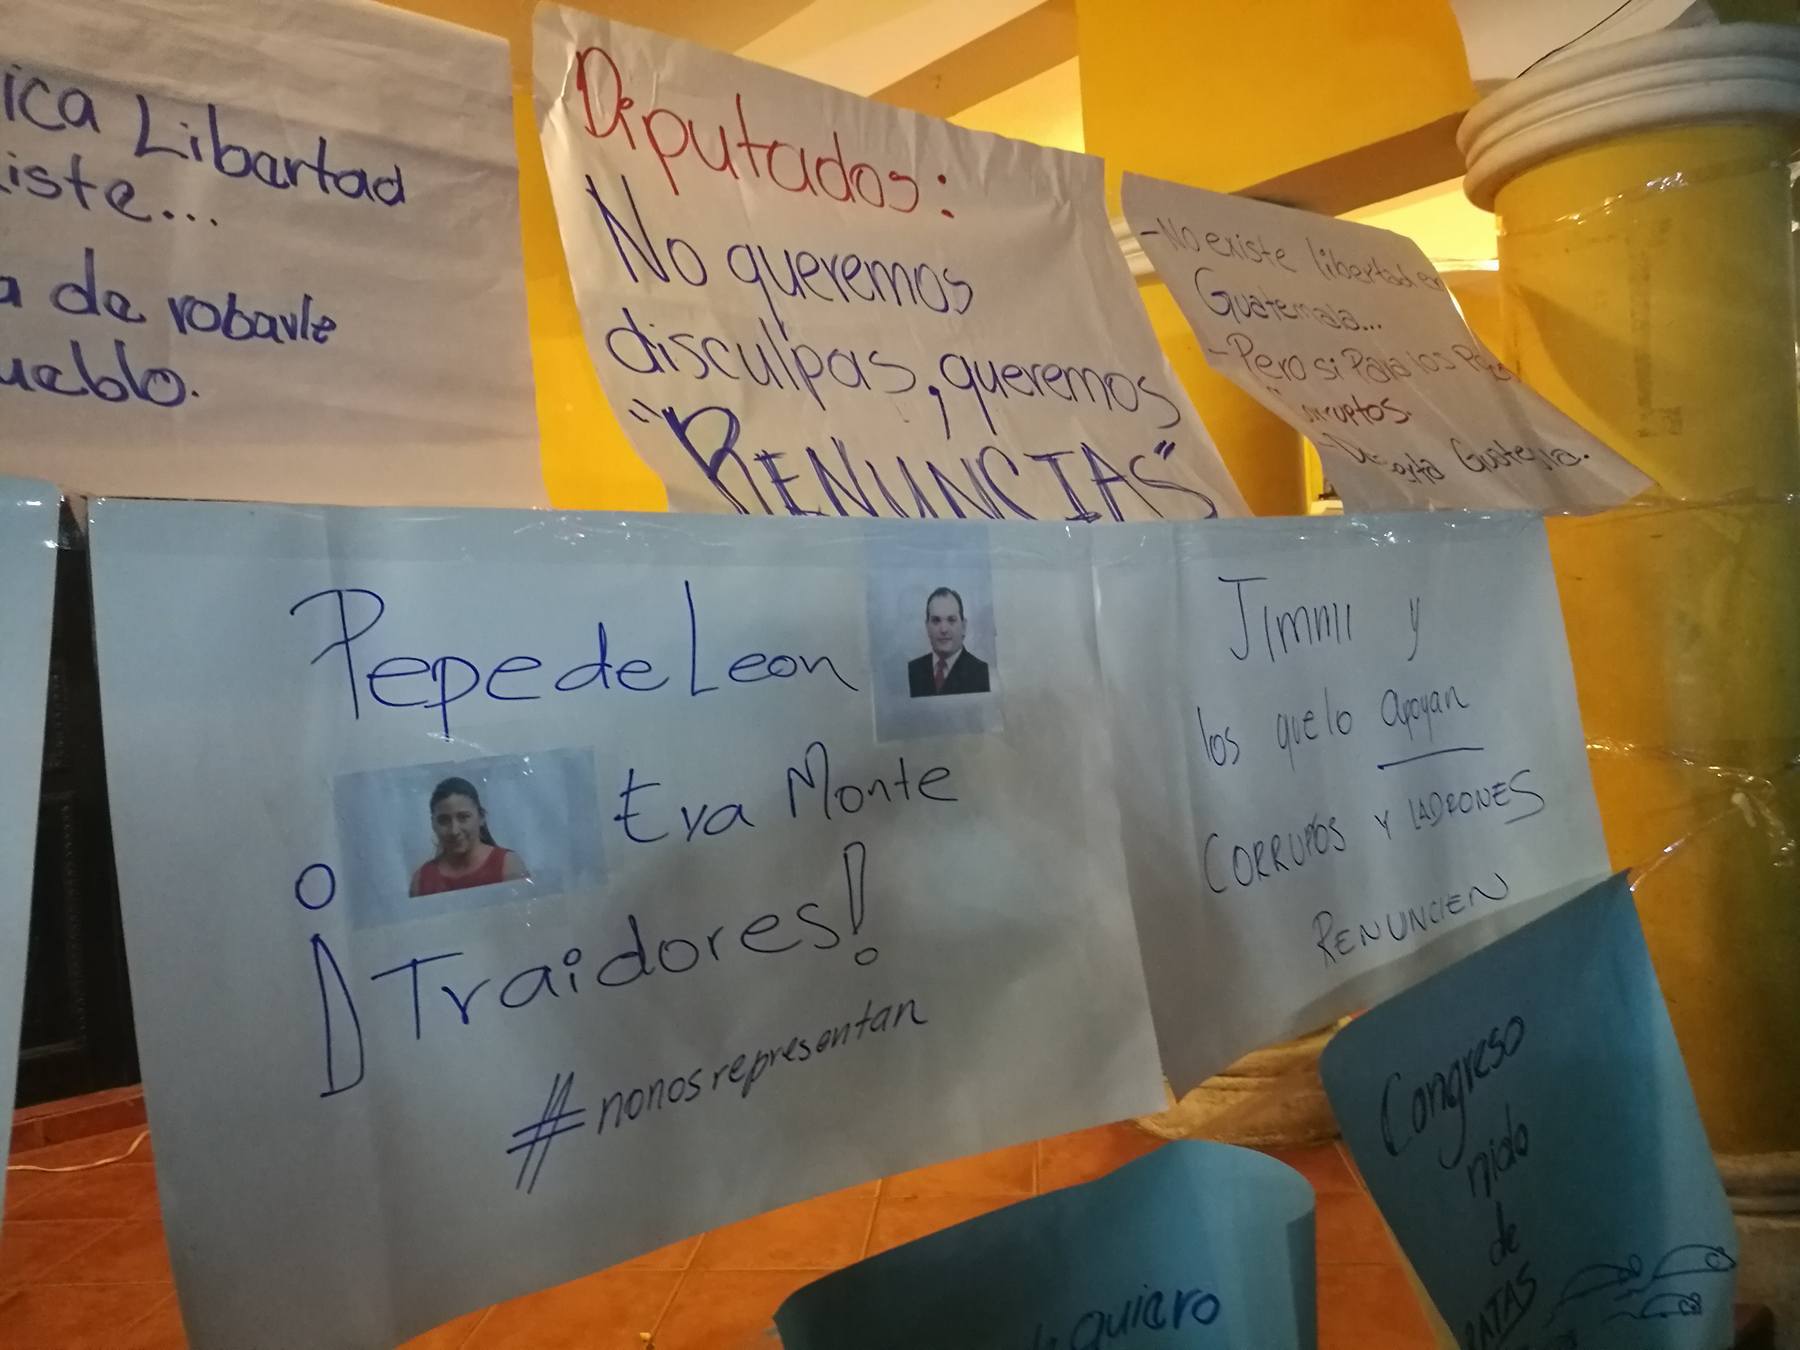 ica Libertad
iste...
a de robarle
ueblo.
Diputados:
No queremos
disculpas, queremos
"RENUNCIAS"
-No existe libertad en
Guatemala...
-Pero si Para los
Pepe de Leon
o Eva Monte
¡Traidores!
#nonosrepresentan
Jimmii y
los que lo apoyan
CORRUPTOS Y LADRONES
RENUNCIEN
Congreso
nido
de
RATAS
quiero